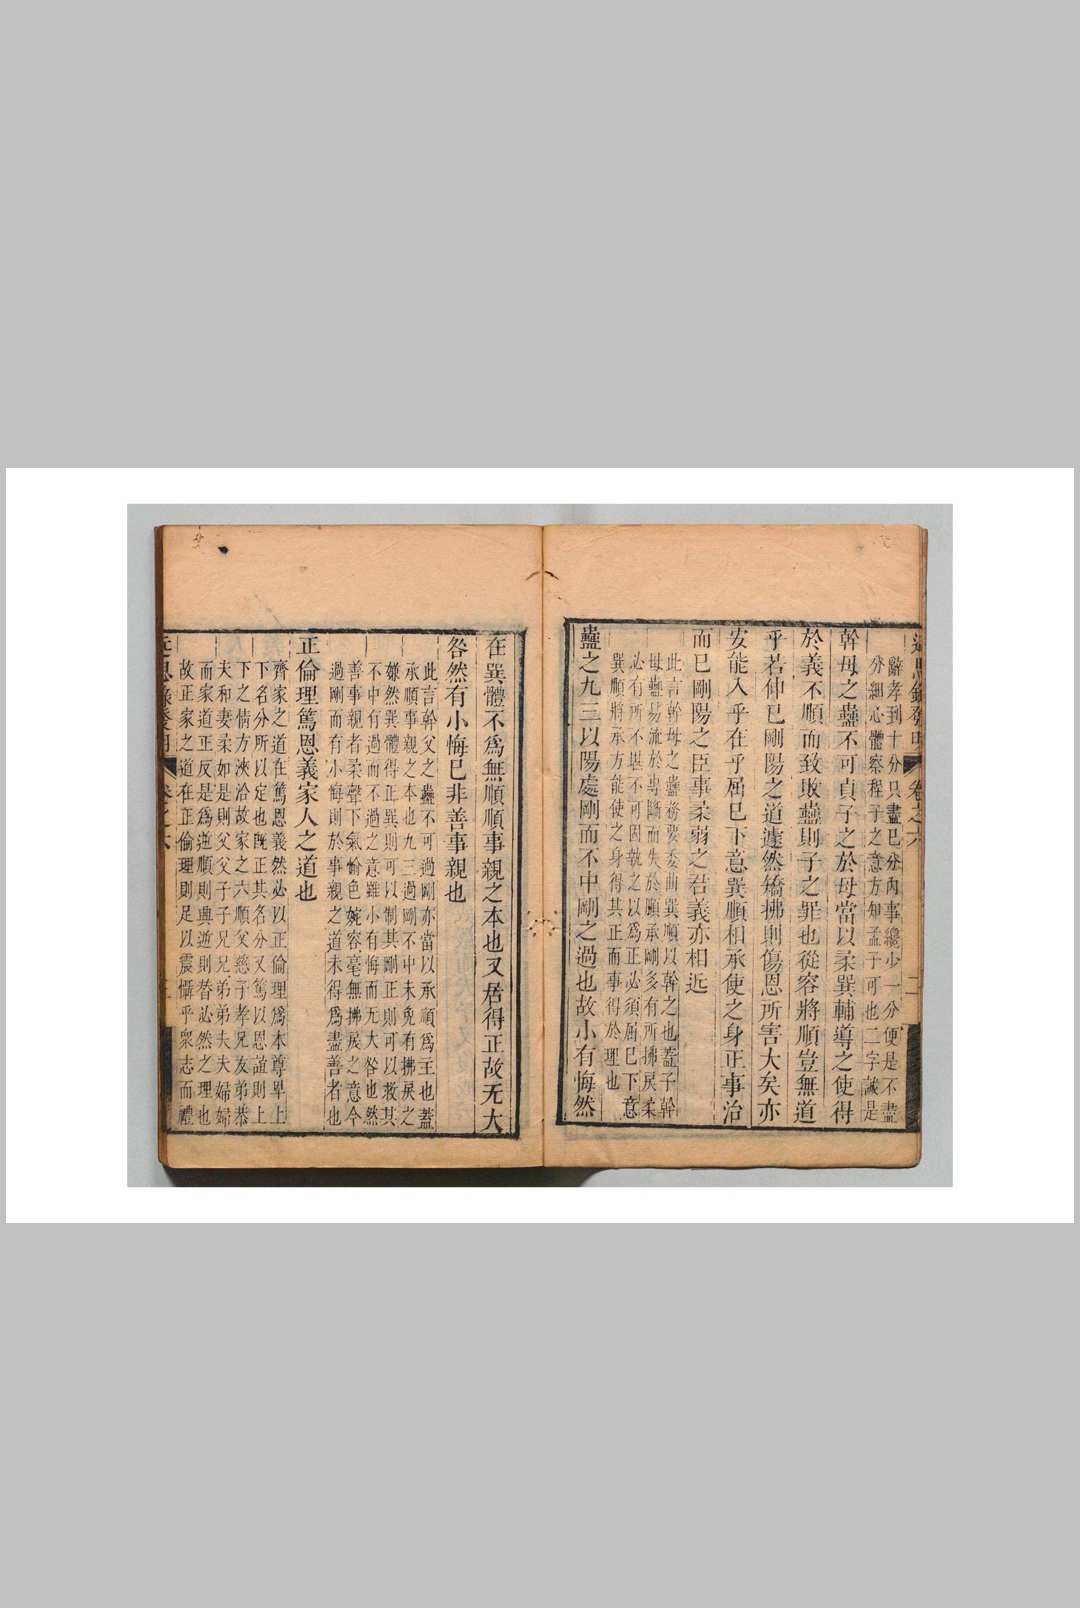 近思錄發明 卷之六 二
辭孝到十分只盡已分內事纔少一分便是不盡
分細心體察程子之意方知孟子可也二字誠是
幹母之蠱不可貞子之於母當以柔巽輔導之使得
於義不順而致敗蠱則子之罪也從容將順豈無道
乎若伸已剛陽之道遽然矯拂則傷恩所害大矣亦
安能入乎在乎屈已下意巽順相承使之身正事治
而已剛陽之臣事柔弱之君義亦相近
此言幹母之蠱務要委曲巽順以幹之也蓋子幹
母蠱易流於專斷而失於順承剛多有所拂戾柔
必有所不堪不可因執之以爲正必須屈已下意
巽順將承方能使之身得其正而事得於理也
蠱之九三以陽處剛而不中剛之過也故小有悔然
在巽體不爲無順順事親之本也又居得正故无大
咎然有小悔已非善事親也
此言幹父之蠱不可過剛亦當以承順爲主也蓋
承順事親之本也九三過剛不中未免有拂戾之
嫌然巽體得正巽則可以制其剛正則可以救其
不中有過而不過之意雖小有悔而无大咎也然
善事親者柔聲下氣愉色婉容毫無拂戾之意今
過剛而有小悔則於事親之道未得爲盡善者也
正倫理篤恩義家人之道也
齊家之道在篤恩義然必以正倫理爲本尊卑上
下名分所以定也既正其名分又篤以恩誼則上
下之情方浹洽故家之六順父慈子孝兄友弟恭
夫和妻柔如是則父父子子兄兄弟弟夫夫婦婦
而家道正反是爲逆順則興逆則替必然之理也
故正家之道在正倫理則足以震懾乎衆志而禮
近思錄發明 卷之六